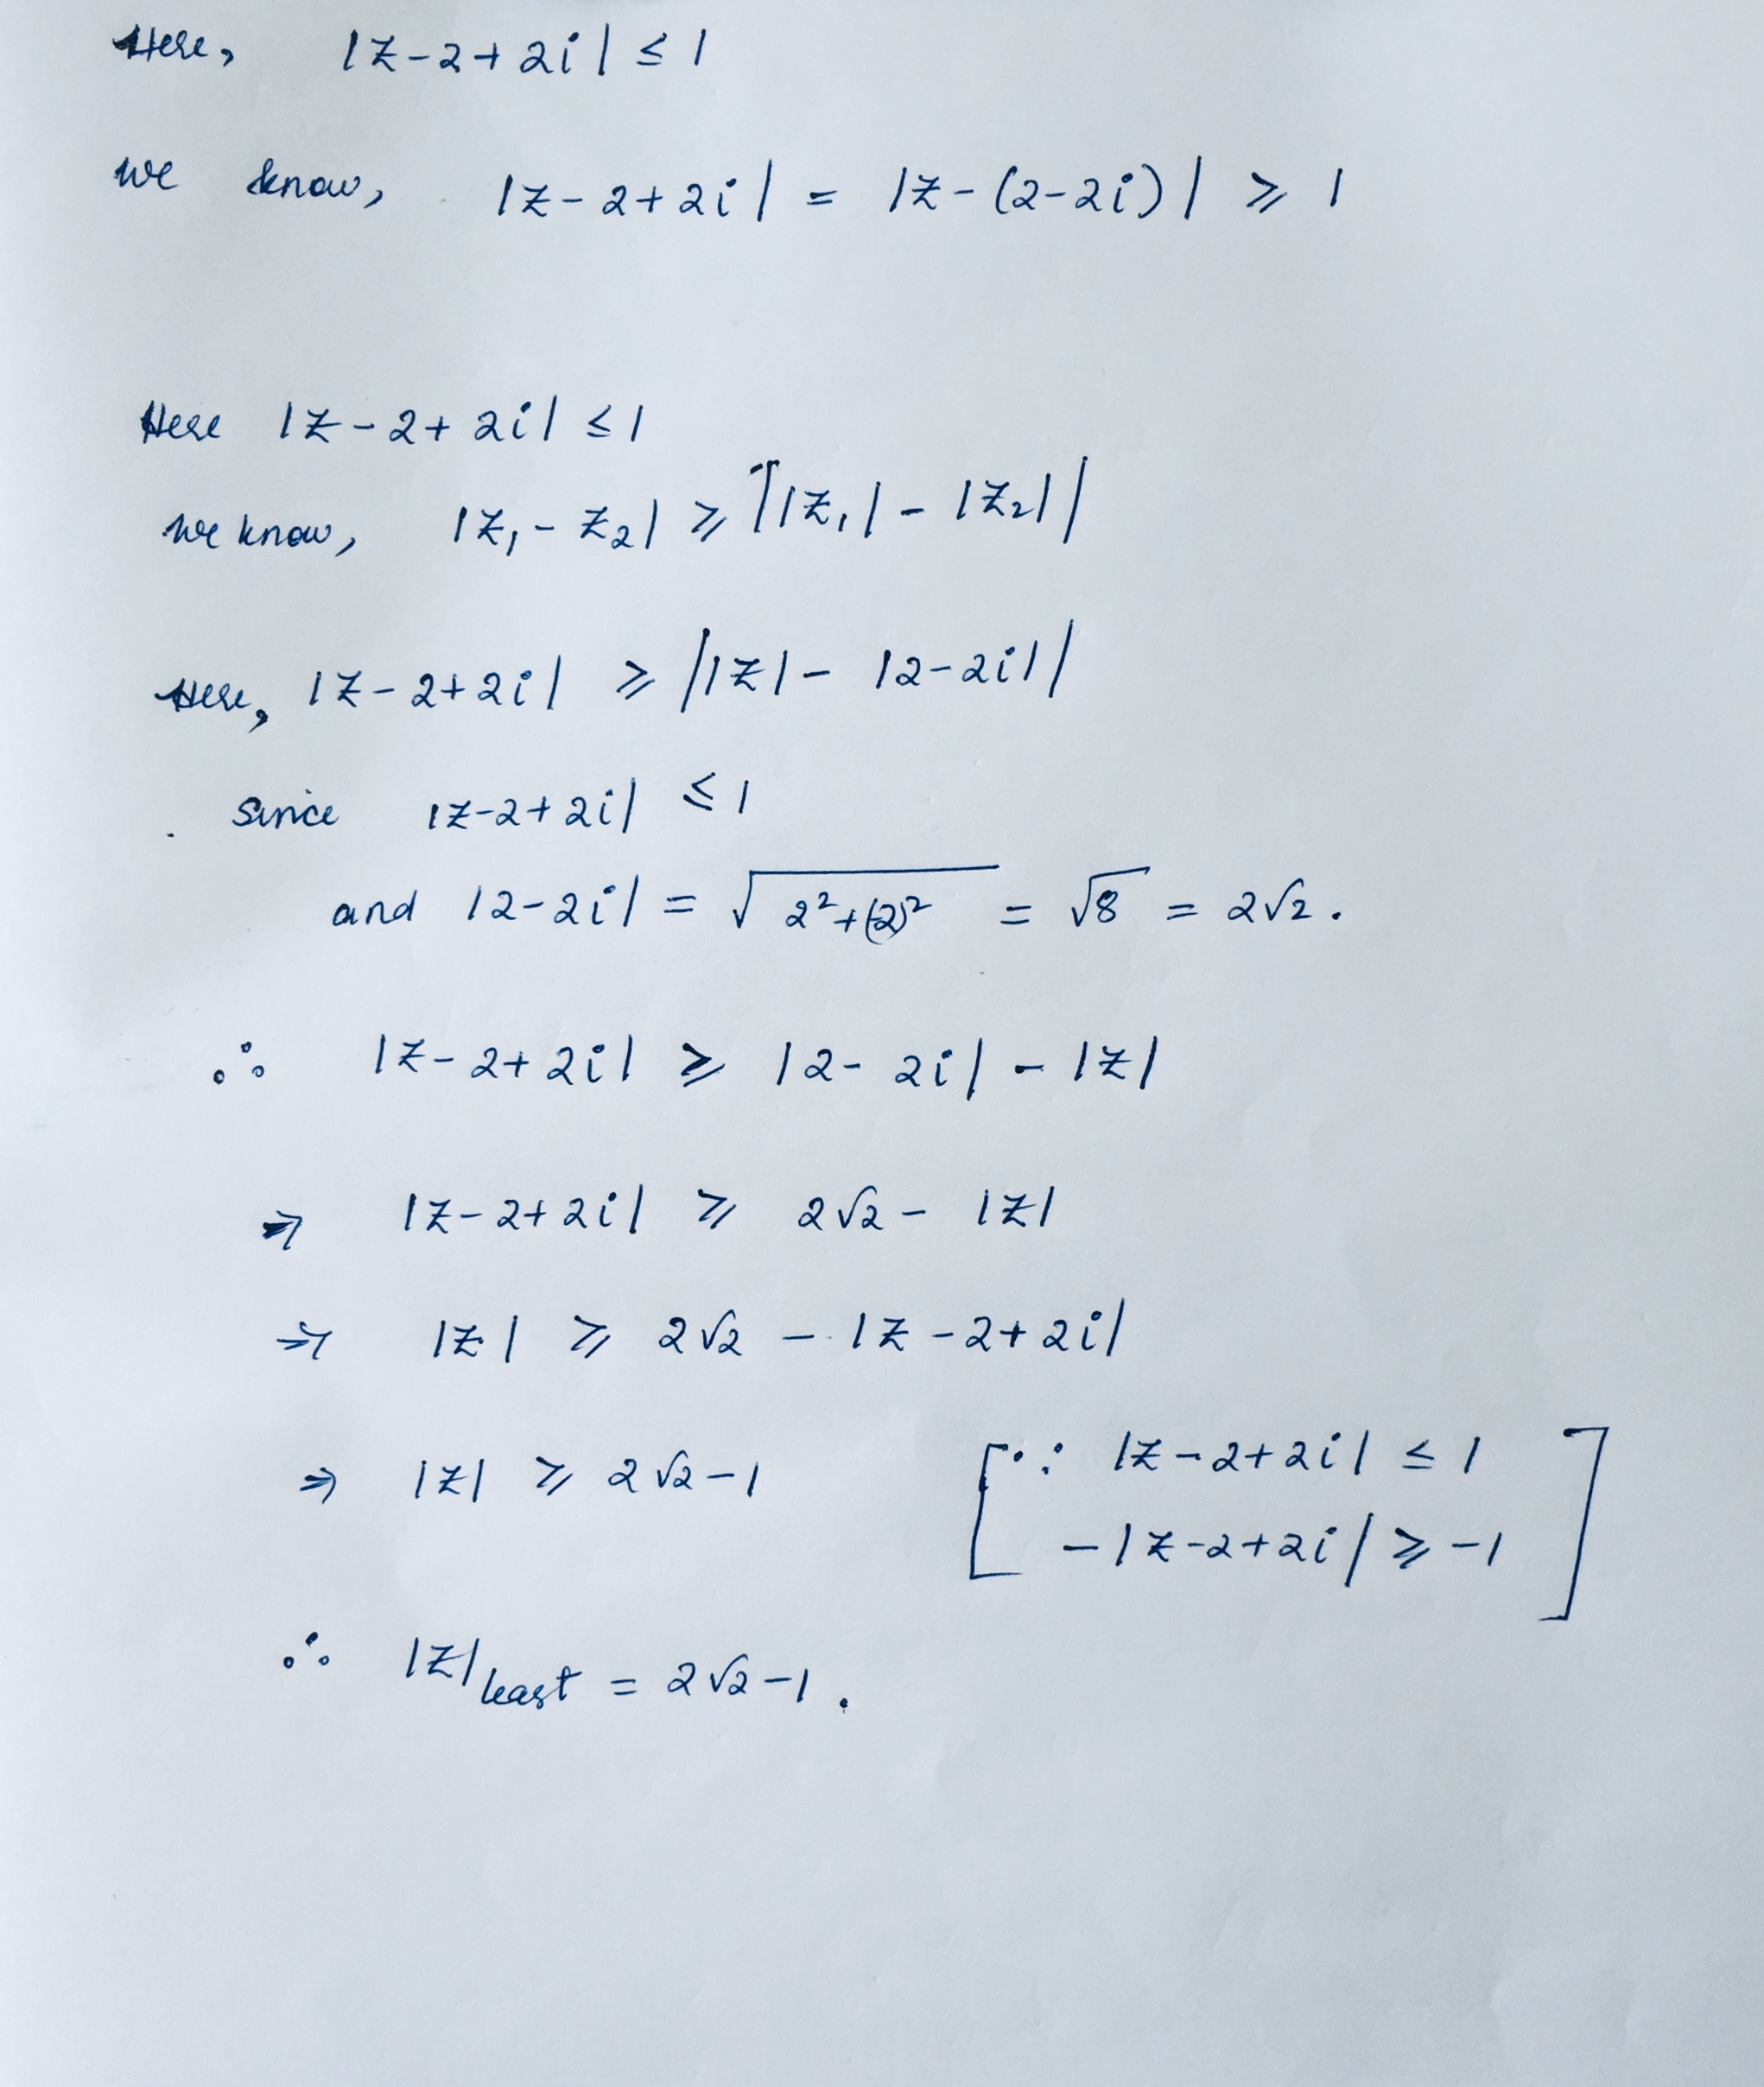 Here, |z-2+2i| ≤ 1
We know, |z-2+2i| = |z-(2-2i)| ⩾ 1
Here |z-2+2i| ≤ 1
We know, |z₁-z₂| ⩾ ||z₁|-|z₂||
Here, |z-2+2i| ⩾ ||z|-|2-2i||
Since |z-2+2i| ≤ 1
and |2-2i| = √(2²+(-2)²) = √8 = 2√2.
∴ |z-2+2i| ⩾ |2-2i|-|z|
⇒ |z-2+2i| ⩾ 2√2-|z|
⇒ |z| ⩾ 2√2-|z-2+2i|
⇒ |z| ⩾ 2√2-1 [∵ |z-2+2i| ≤ 1
-|z-2+2i| ⩾ -1]
∴ |z|least = 2√2-1.